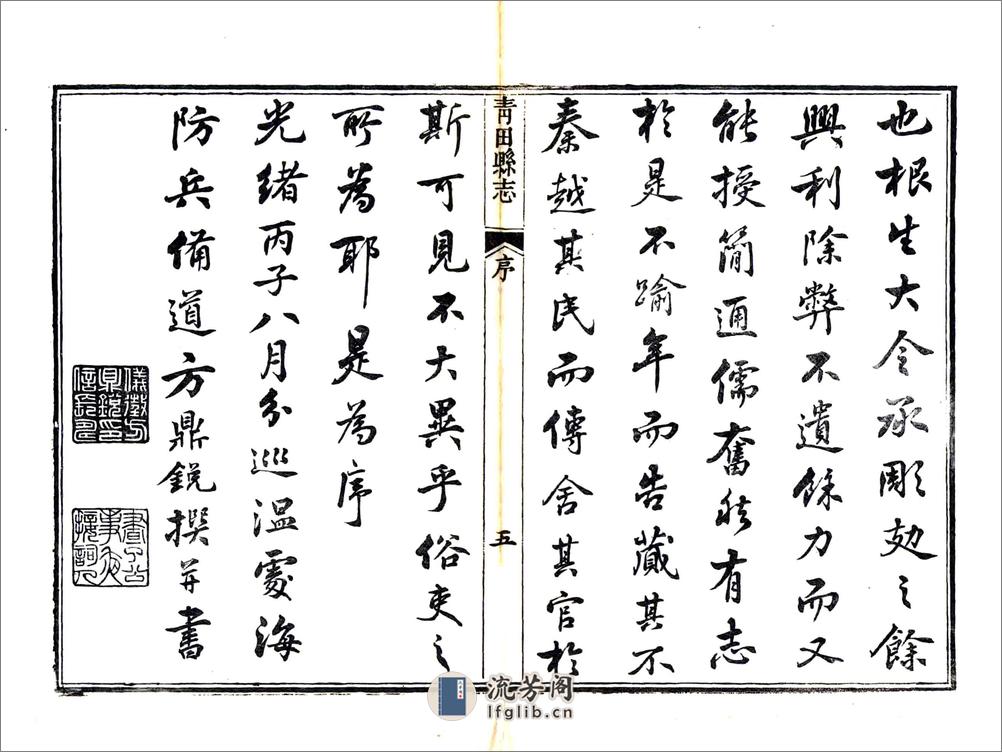 也根生大令承彫攰之餘
興利除弊不遺餘力而又
能授簡通儒奮然有志
於是不踰年而告蕆其不
秦越其民而傳舍其官於
青田縣志 序 五
斯可見不大異乎俗吏之
所為耶是為序
光緒丙子八月分巡温處海
防兵備道方鼎銳撰并書
儀徵方鼎銳印信長壽
晝了公事夜接詞人
流芳阁
lfglib.cn